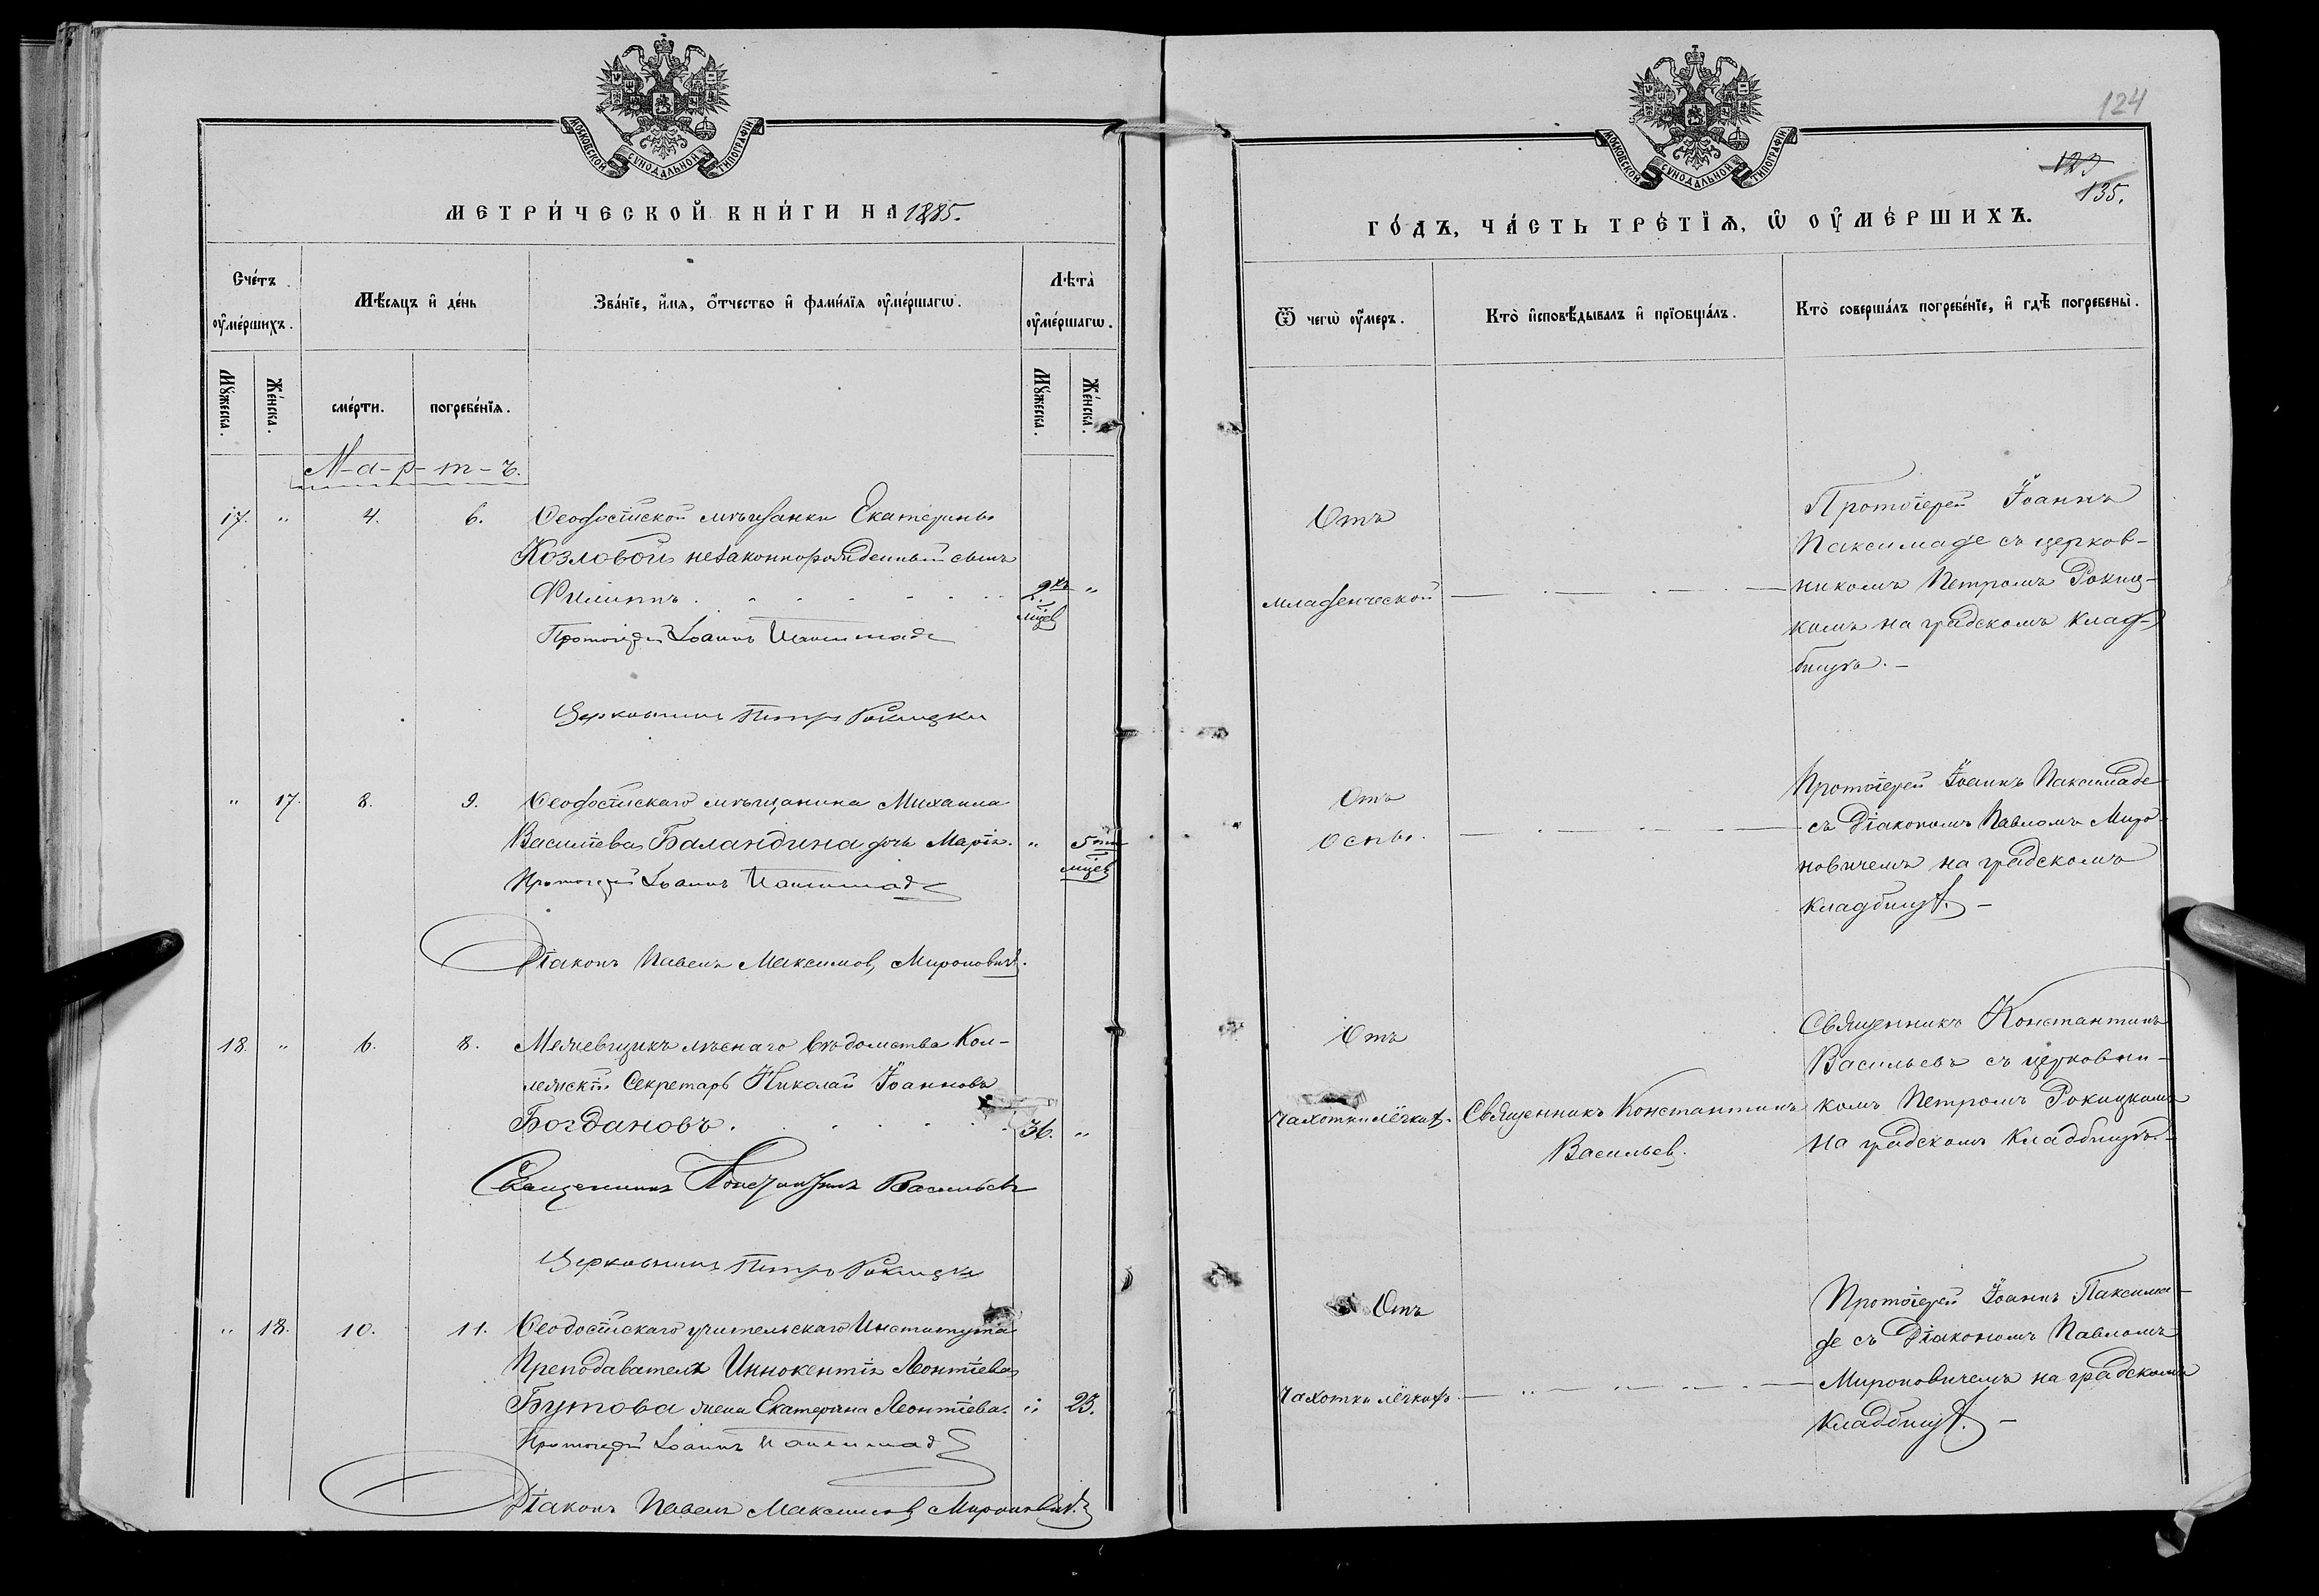 МОСКОВСКОЙ СУНОДАЛЬНОЙ ТИПОГРАФІИ
МЕТРИ́ЧЕСКОЙ КНИ́ГИ НА 1885.
Сче́тъ оу҆ме́ршихъ.
Мѣ́сяцъ и҆ де́нь
Зва́нїе, и҆́мя, ѻ҆́тчество и҆ фами́лїя оу҆ме́ршагѡ.
Лѣта̀ оу҆ме́ршагѡ.
Мꙋ́жеска.
Же́нска.
сме́рти.
погребе́нїя.
Мꙋ́жеска.
Же́нска.
М-а-р-т-ъ.
17. " 4. 6. Ѳеодосійской мѣщанки Екатерины
Козловой незаконнорожденный сынъ
Филиппъ . . . . . . 2хъ "
мцев
Протоіерей Іоаннъ Паксимаде
Церковникъ Петръ Рокицки
" 17. 8. 9. Ѳеодосійскаго мѣщанина Михаила
Васильева Баландина дочь Марія. " 5ти
мцев
Протоіерей Іоаннъ Паксимаде
Діаконъ Павелъ Максимов Миронович.
18. " 6. 8. Межевщикъ лѣснаго вѣдомства Кол-
лежскій Секретарь Николай Іоанновъ
Богдановъ . . . . . . 36. "
Священникъ Константинъ Васильевъ
Церковникъ Петръ Рокицки
" 18. 10. 11. Ѳеодосійскаго учительскаго Института
Преподавателя Иннокентія Леонтіева
Бутова жена Екатерина Леонтіева. " 23.
Протоіерей Іоаннъ Паксимаде
Діаконъ Павелъ Максимов Миронович.
МОСКОВСКОЙ СУНОДАЛЬНОЙ ТИПОГРАФІИ
124
123
135.
ГО́ДЪ, ЧА́СТЬ ТРЕ́ТЇѦ, Ѡ҆ ОУ҆МЕ́РШИХЪ.
Ѿ чегѡ̀ оу҆́меръ.
Кто̀ и҆сповѣ́дывалъ и҆ прїобща́лъ.
Кто̀ соверша́лъ погребе́нїе, и҆ гдѣ̀ погребены̀.
Отъ
младенческой
Протоіерей Іоаннъ
Паксимаде съ церков-
никомъ Петромъ Рокиц-
кимъ на градскомъ клад-
бищѣ. -
Отъ
оспы.
Протоіерей Іоаннъ Паксимаде
съ Діакономъ Павломъ Миро-
новичемъ на градскомъ
кладбищѣ. -
Отъ
чахотки лёгкихъ.
Священникъ Константинъ
Васильев.
Священникъ Константинъ
Васильевъ съ церковни-
комъ Петромъ Рокицкимъ
на градскомъ кладбищѣ. -
Отъ
чахотки лёгкихъ.
Протоіерей Іоаннъ Паксима-
де съ Діакономъ Павломъ
Мироновичемъ на градскомъ
кладбищѣ. -